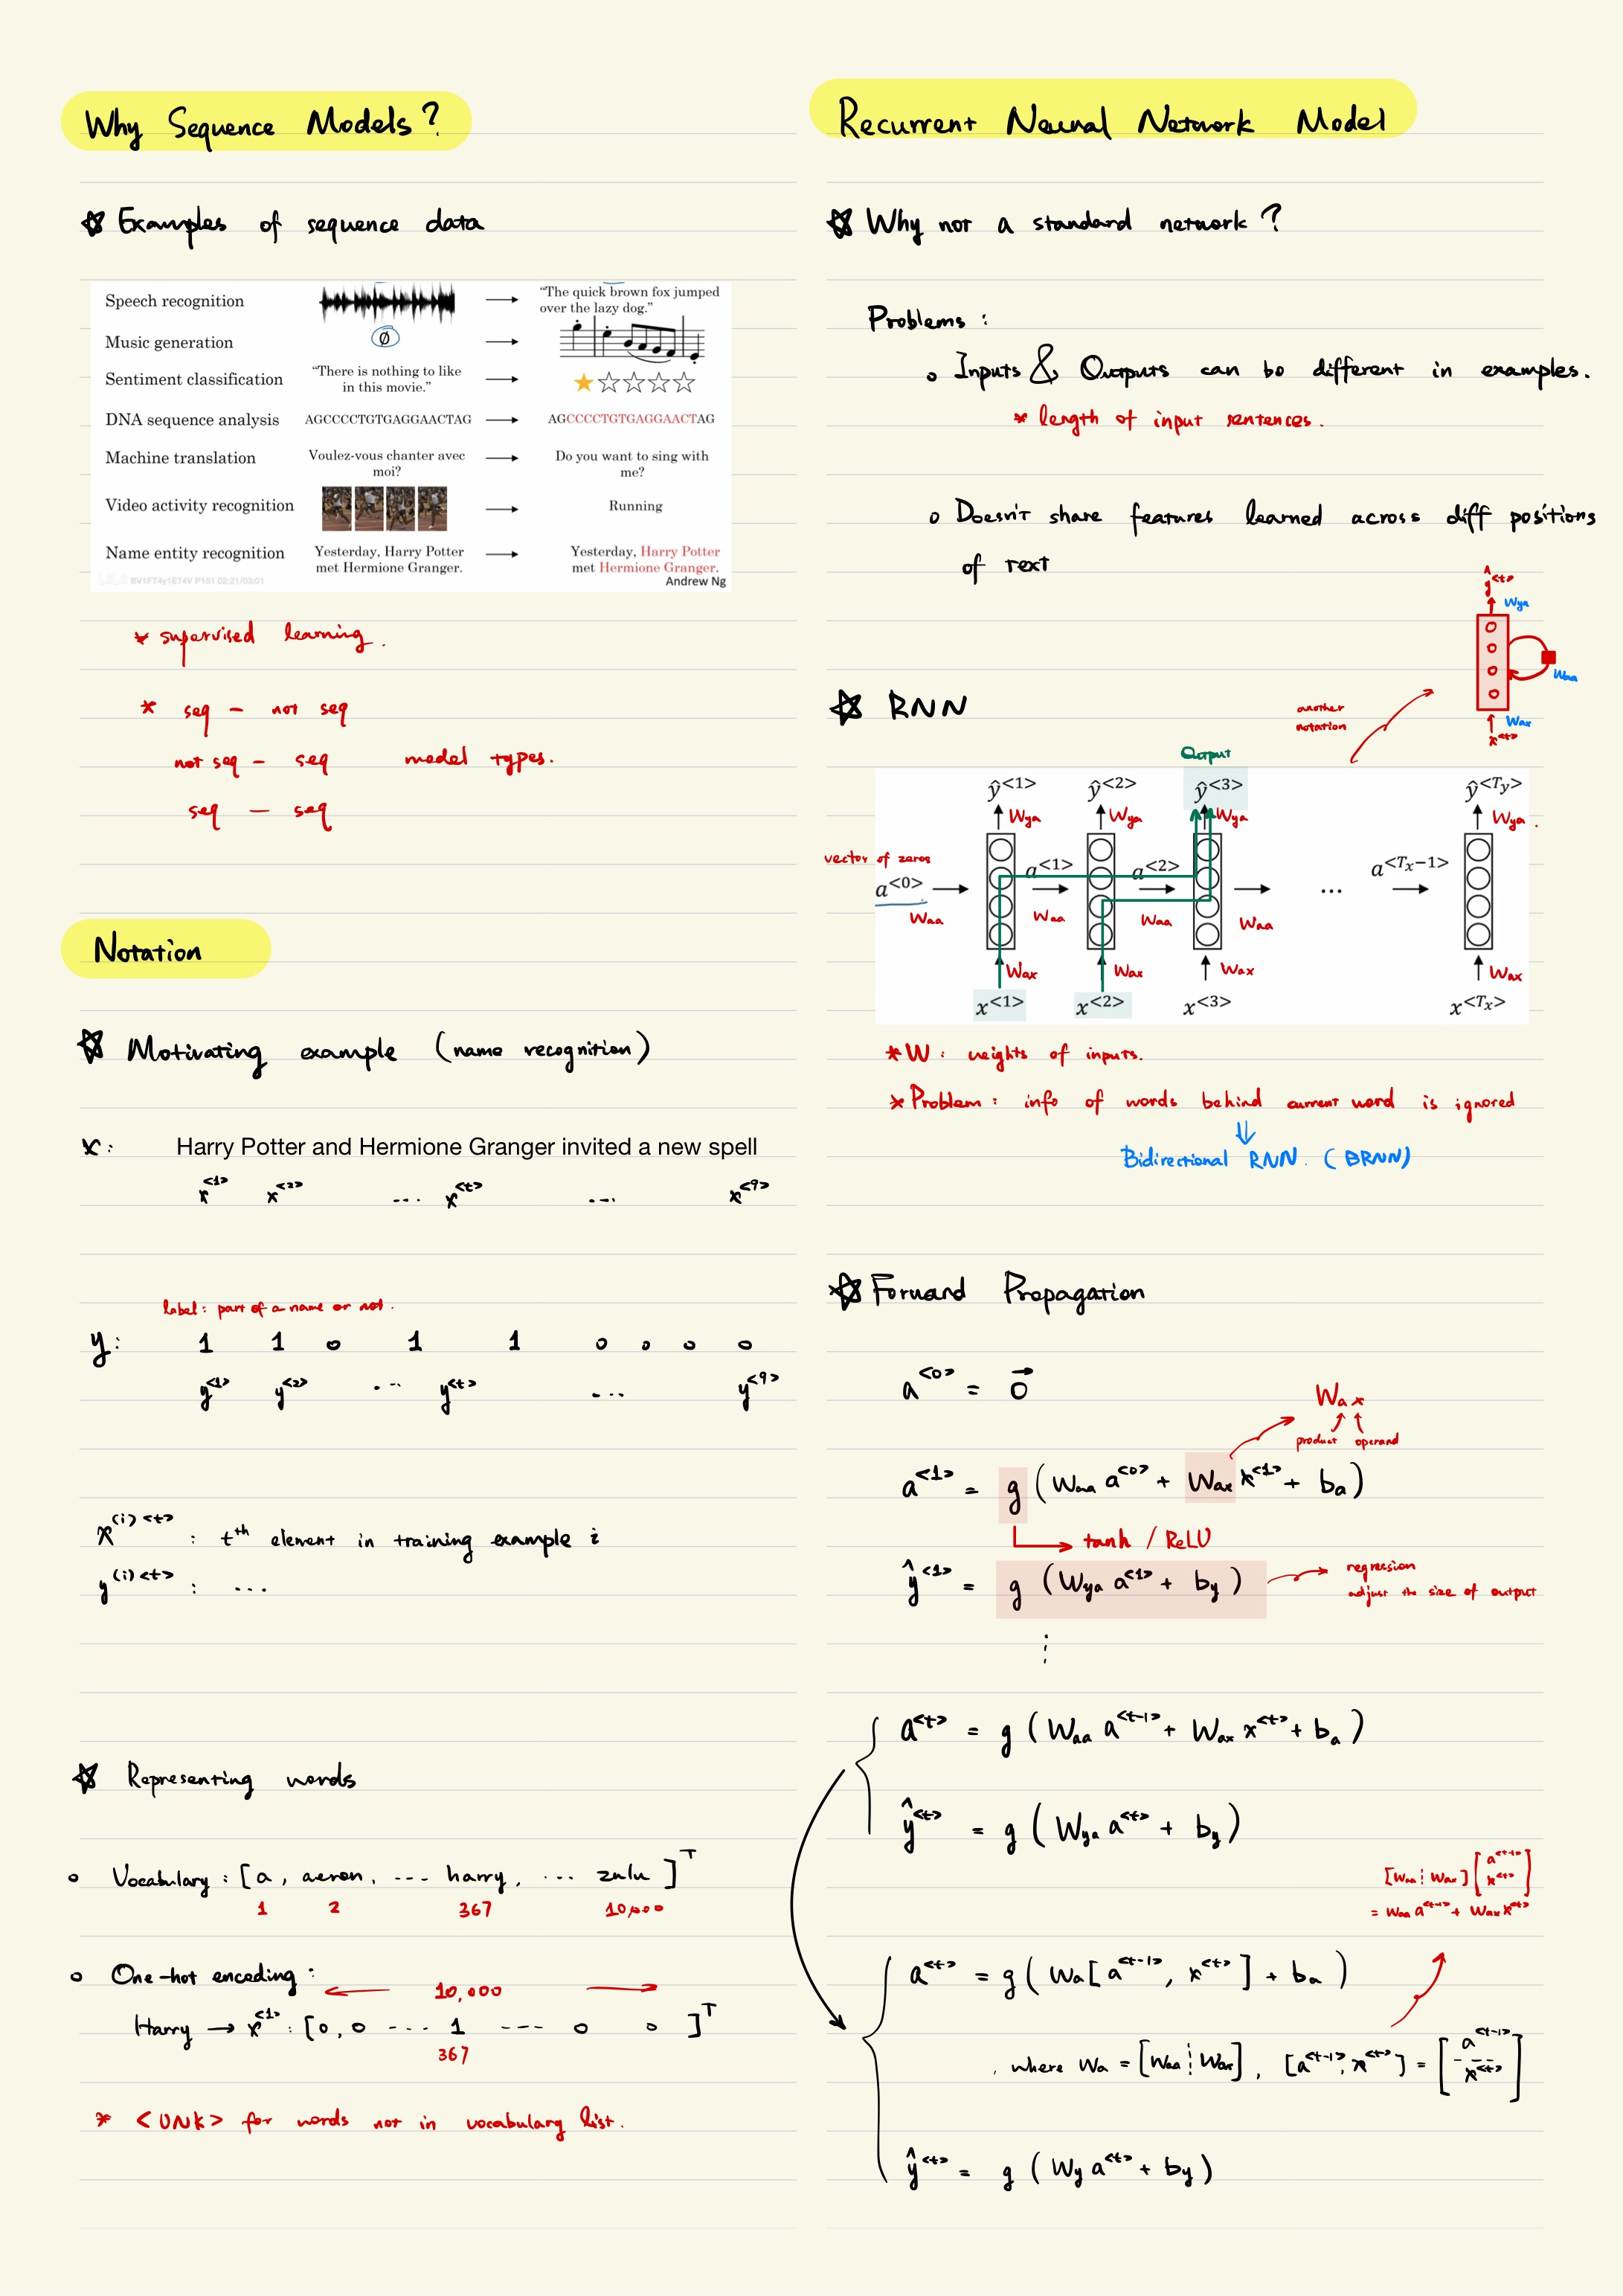 Why Sequence Models?
☆ Examples of sequence data
Speech recognition → "The quick brown fox jumped over the lazy dog."
Music generation ∅ →
Sentiment classification "There is nothing to like in this movie." → ★☆☆☆☆
DNA sequence analysis AGCCCCTGTGAGGAACTAG → AGCCCCTGTGAGGAACTAG
Machine translation Voulez-vous chanter avec moi? → Do you want to sing with me?
Video activity recognition → Running
Name entity recognition Yesterday, Harry Potter met Hermione Granger. → Yesterday, Harry Potter met Hermione Granger.
BV1FT4y1E74V P151 02:21/03:01
Andrew Ng
* supervised learning.
* seq - not seq
not seq - seq model types.
seq - seq
Notation
☆ Motivating example (name recognition)
x: Harry Potter and Hermione Granger invited a new spell
x<1> x<2> ... x<t> ... x<9>
label: part of a name or not.
y: 1 1 0 1 1 0 0 0 0
y<1> y<2> ... y<t> ... y<9>
x(i)<t> : t th element in training example i
y(i)<t> : ...
☆ Representing words
o Vocabulary : [a, aeron, --- harry, ... zulu ]T
1 2 367 10,000
o One-hot encoding :
← 10,000 →
Harry → x<1> : [0, 0 --- 1 --- 0 0 ]T
367
* <UNK> for words not in vocabulary list.
Recurrent Neural Network Model
☆ Why not a standard network?
Problems :
o Inputs & Outputs can be different in examples.
* length of input sentences.
o Doesn't share features learned across diff positions
of text
ŷ<t>
Wya
Waa
Wax
x<t>
☆ RNN
another
notation
Output
ŷ<1> ŷ<2> ŷ<3> ŷ<Ty>
Wya Wya Wya Wya.
vector of zeros
a<0> a<1> a<2> ... a<Tx−1>
Waa Waa Waa Waa
Wax Wax Wax Wax
x<1> x<2> x<3> x<Tx>
* W : weights of inputs.
* Problem : info of words behind current word is ignored
↓
Bidirectional RNN. (BRNN)
☆ Forward Propagation
a<0> = 0
Wax
product operand
a<1> = g (Waa a<0> + Wax x<1> + ba)
tanh / ReLU
ŷ<1> = g (Wya a<1> + by) → regression
adjust the size of output
⋮
a<t> = g (Waa a<t-1> + Wax x<t> + ba)
ŷ<t> = g (Wya a<t> + by)
[Waa ⋮ Wax] [a<t-1> x<t>]
= Waa a<t-1> + Wax x<t>
a<t> = g (Wa[a<t-1>, x<t>] + ba)
, where Wa = [Waa ⋮ Wax], [a<t-1>, x<t>] = [a<t-1> --- x<t>]
ŷ<t> = g (Wy a<t> + by)